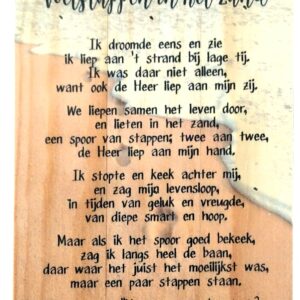 Voetstappen in het zand
Ik droomde eens en zie
ik liep aan 't strand bij lage tij.
Ik was daar niet alleen,
want ook de Heer liep aan mijn zij.
We liepen samen het leven door,
en lieten in het zand,
een spoor van stappen; twee aan twee,
de Heer liep aan mijn hand.
Ik stopte en keek achter mij,
en zag mijn levensloop,
in tijden van geluk en vreugde,
van diepe smart en hoop.
Maar als ik het spoor goed bekeek,
zag ik langs heel de baan,
daar waar het juist het moeilijkst was,
maar een paar stappen staan.